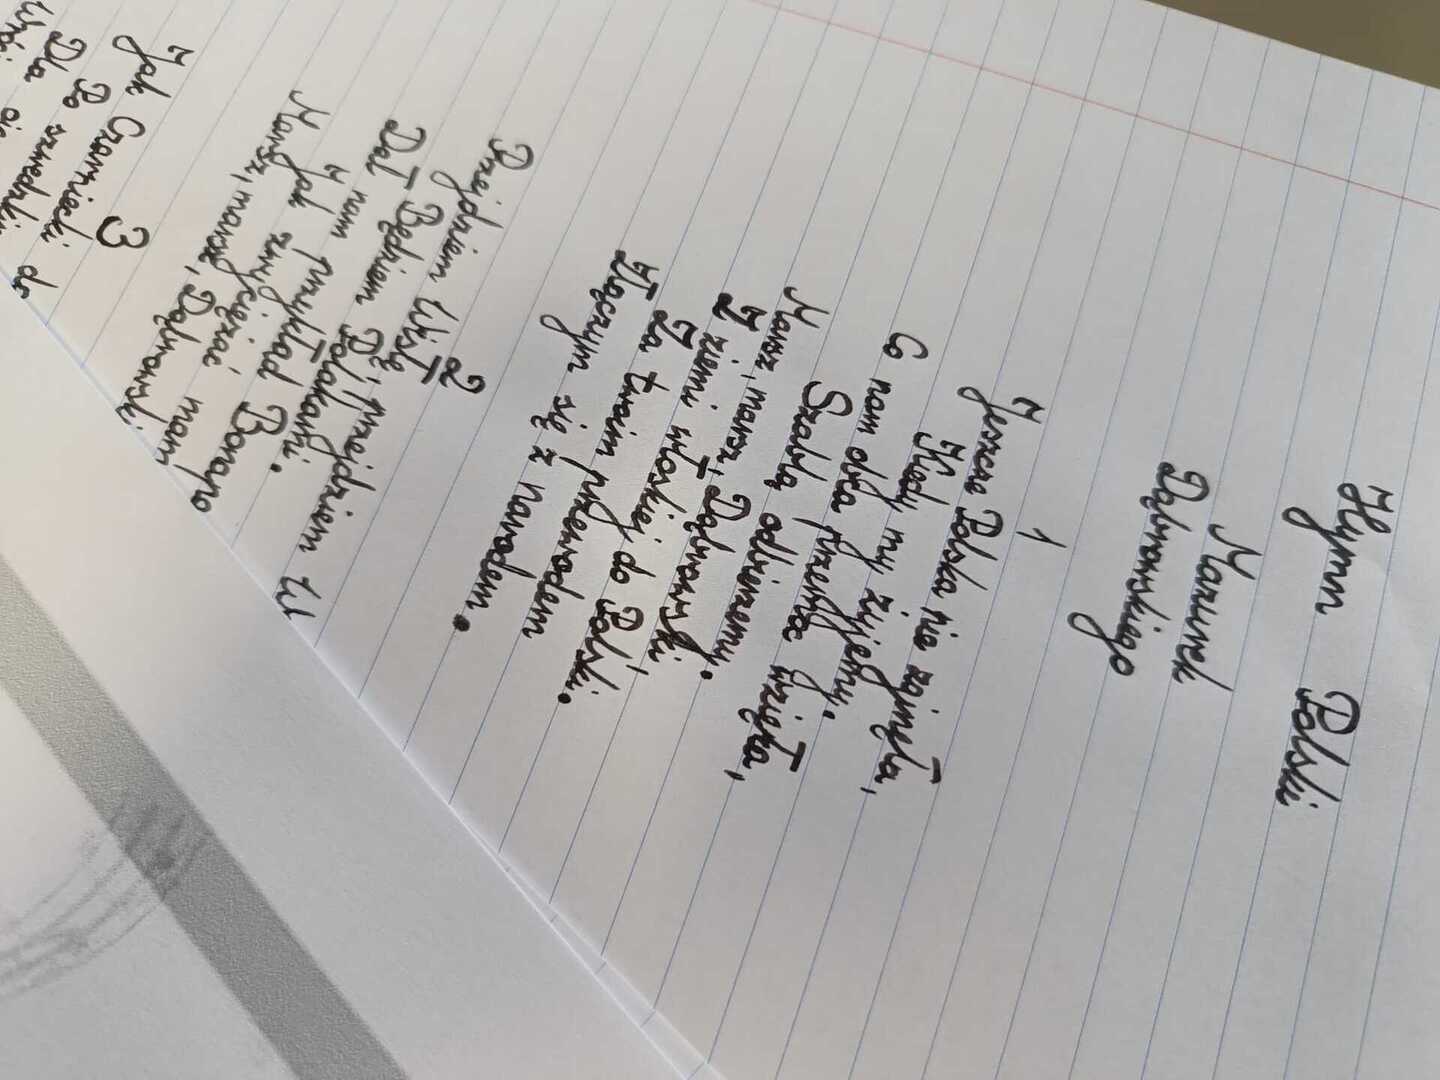 Hymn Polski
Mazurek
Dąbrowskiego
1
Jeszcze Polska nie zginęła,
Kiedy my żyjemy.
Co nam obca przemoc wzięła,
Szablą odbierzemy.
Marsz, marsz, Dąbrowski,
Z ziemi włoskiej do Polski.
Za twoim przewodem
Złączym się z narodem.
2
Przejdziem Wisłę, przejdziem W
Będziem Polakami.
Dał nam przykład Bonapa
Jak zwyciężać mamy
Marsz, marsz, Dąbrowski
3
Jak Czarniecki do
Po szwedzkim
Dla